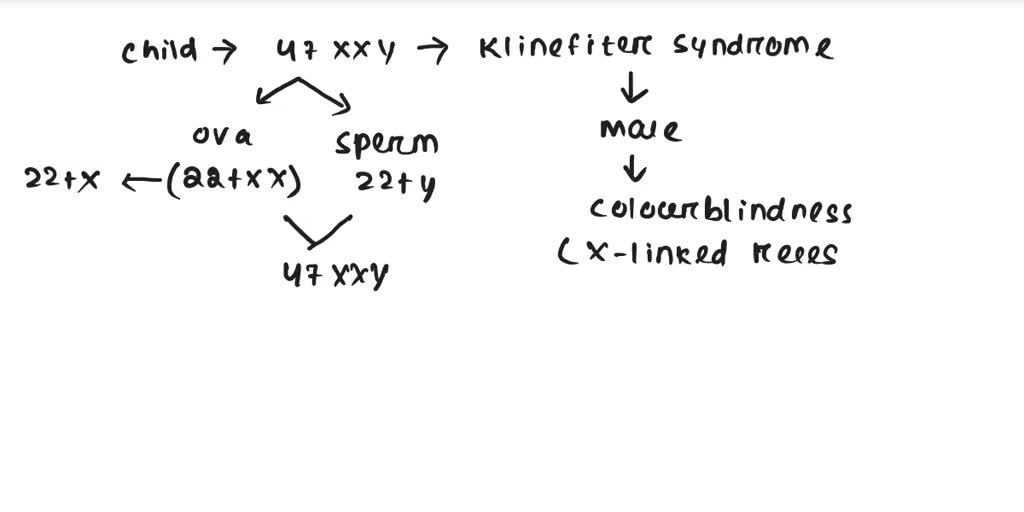 child → 47 xxy → Klinefiter syndrome
ova sperm male
22+x ← (22+xx) 22+y
colourblindness
47 xxy (x-linked reces